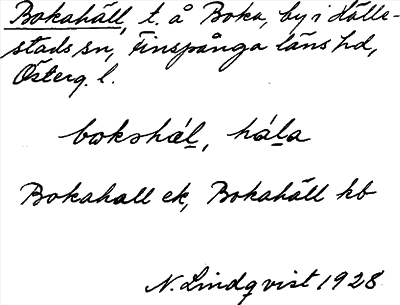 Bokahäll, t. å Boka, by i Hälle-
stads sn, Finspånga läns hd,
Österg. l.
bωkshál, hála
Bokahall ek, Bokahäll kb
N. Lindqvist 1928